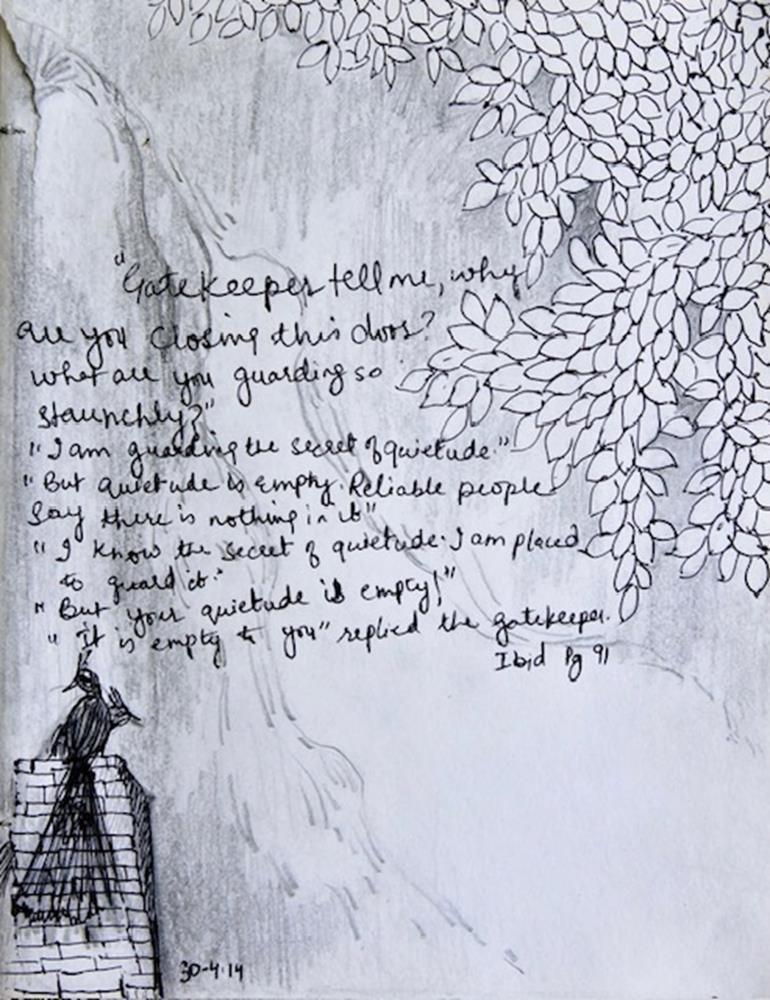 "Gatekeeper tell me, why
are you closing this doors?
what are you guarding so
staunchly?"
"I am guarding the secret of quietude."
"But quietude is empty. Reliable people
say there is nothing in it"
"I know the secret of quietude. I am placed
to guard it."
"But your quietude is empty!"
"It is empty to you" replied the gatekeeper.
Ibid Pg 91
30-4-14